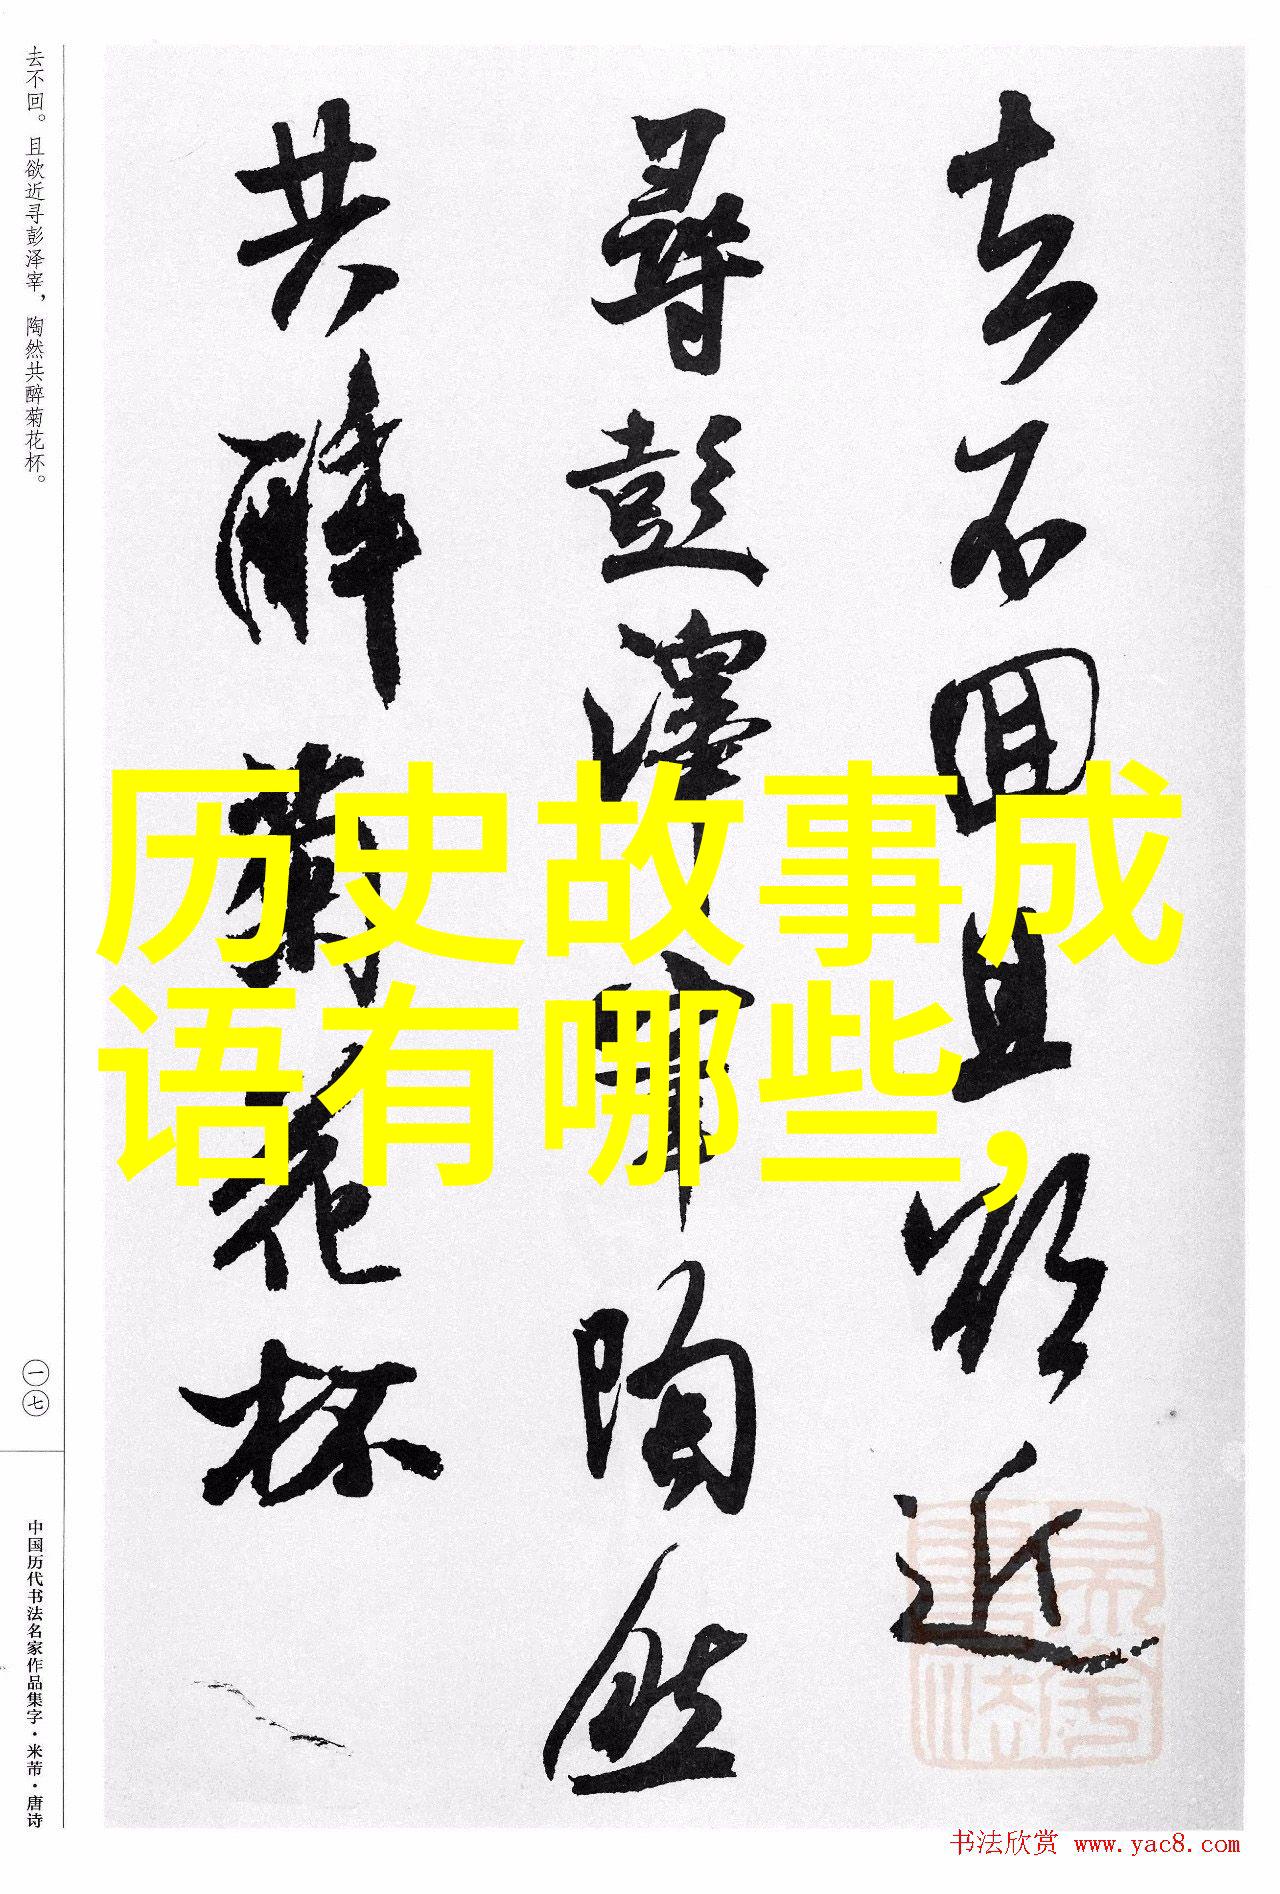 去不回。且欲近寻彭泽宰，陶然共醉菊花杯。
去不回且欲近
尋彭澤宰陶然
共醉菊花杯
历史故事成
语有哪些，
一七
中国历代书法名家作品集字·米芾·唐诗
书法欣赏 www.yac8.com